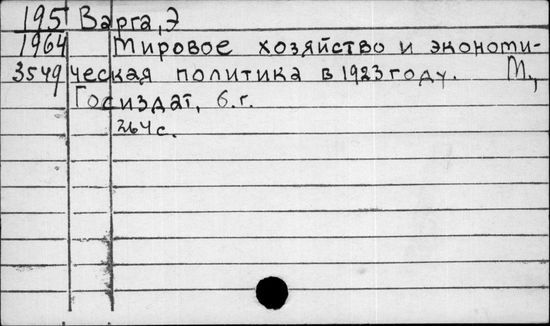 195 Варга, Э
1964 Мировое хозяйство и экономи-
3549 ческая политика в 1923 году. М.,
Госиздат, б.г.
264 с.